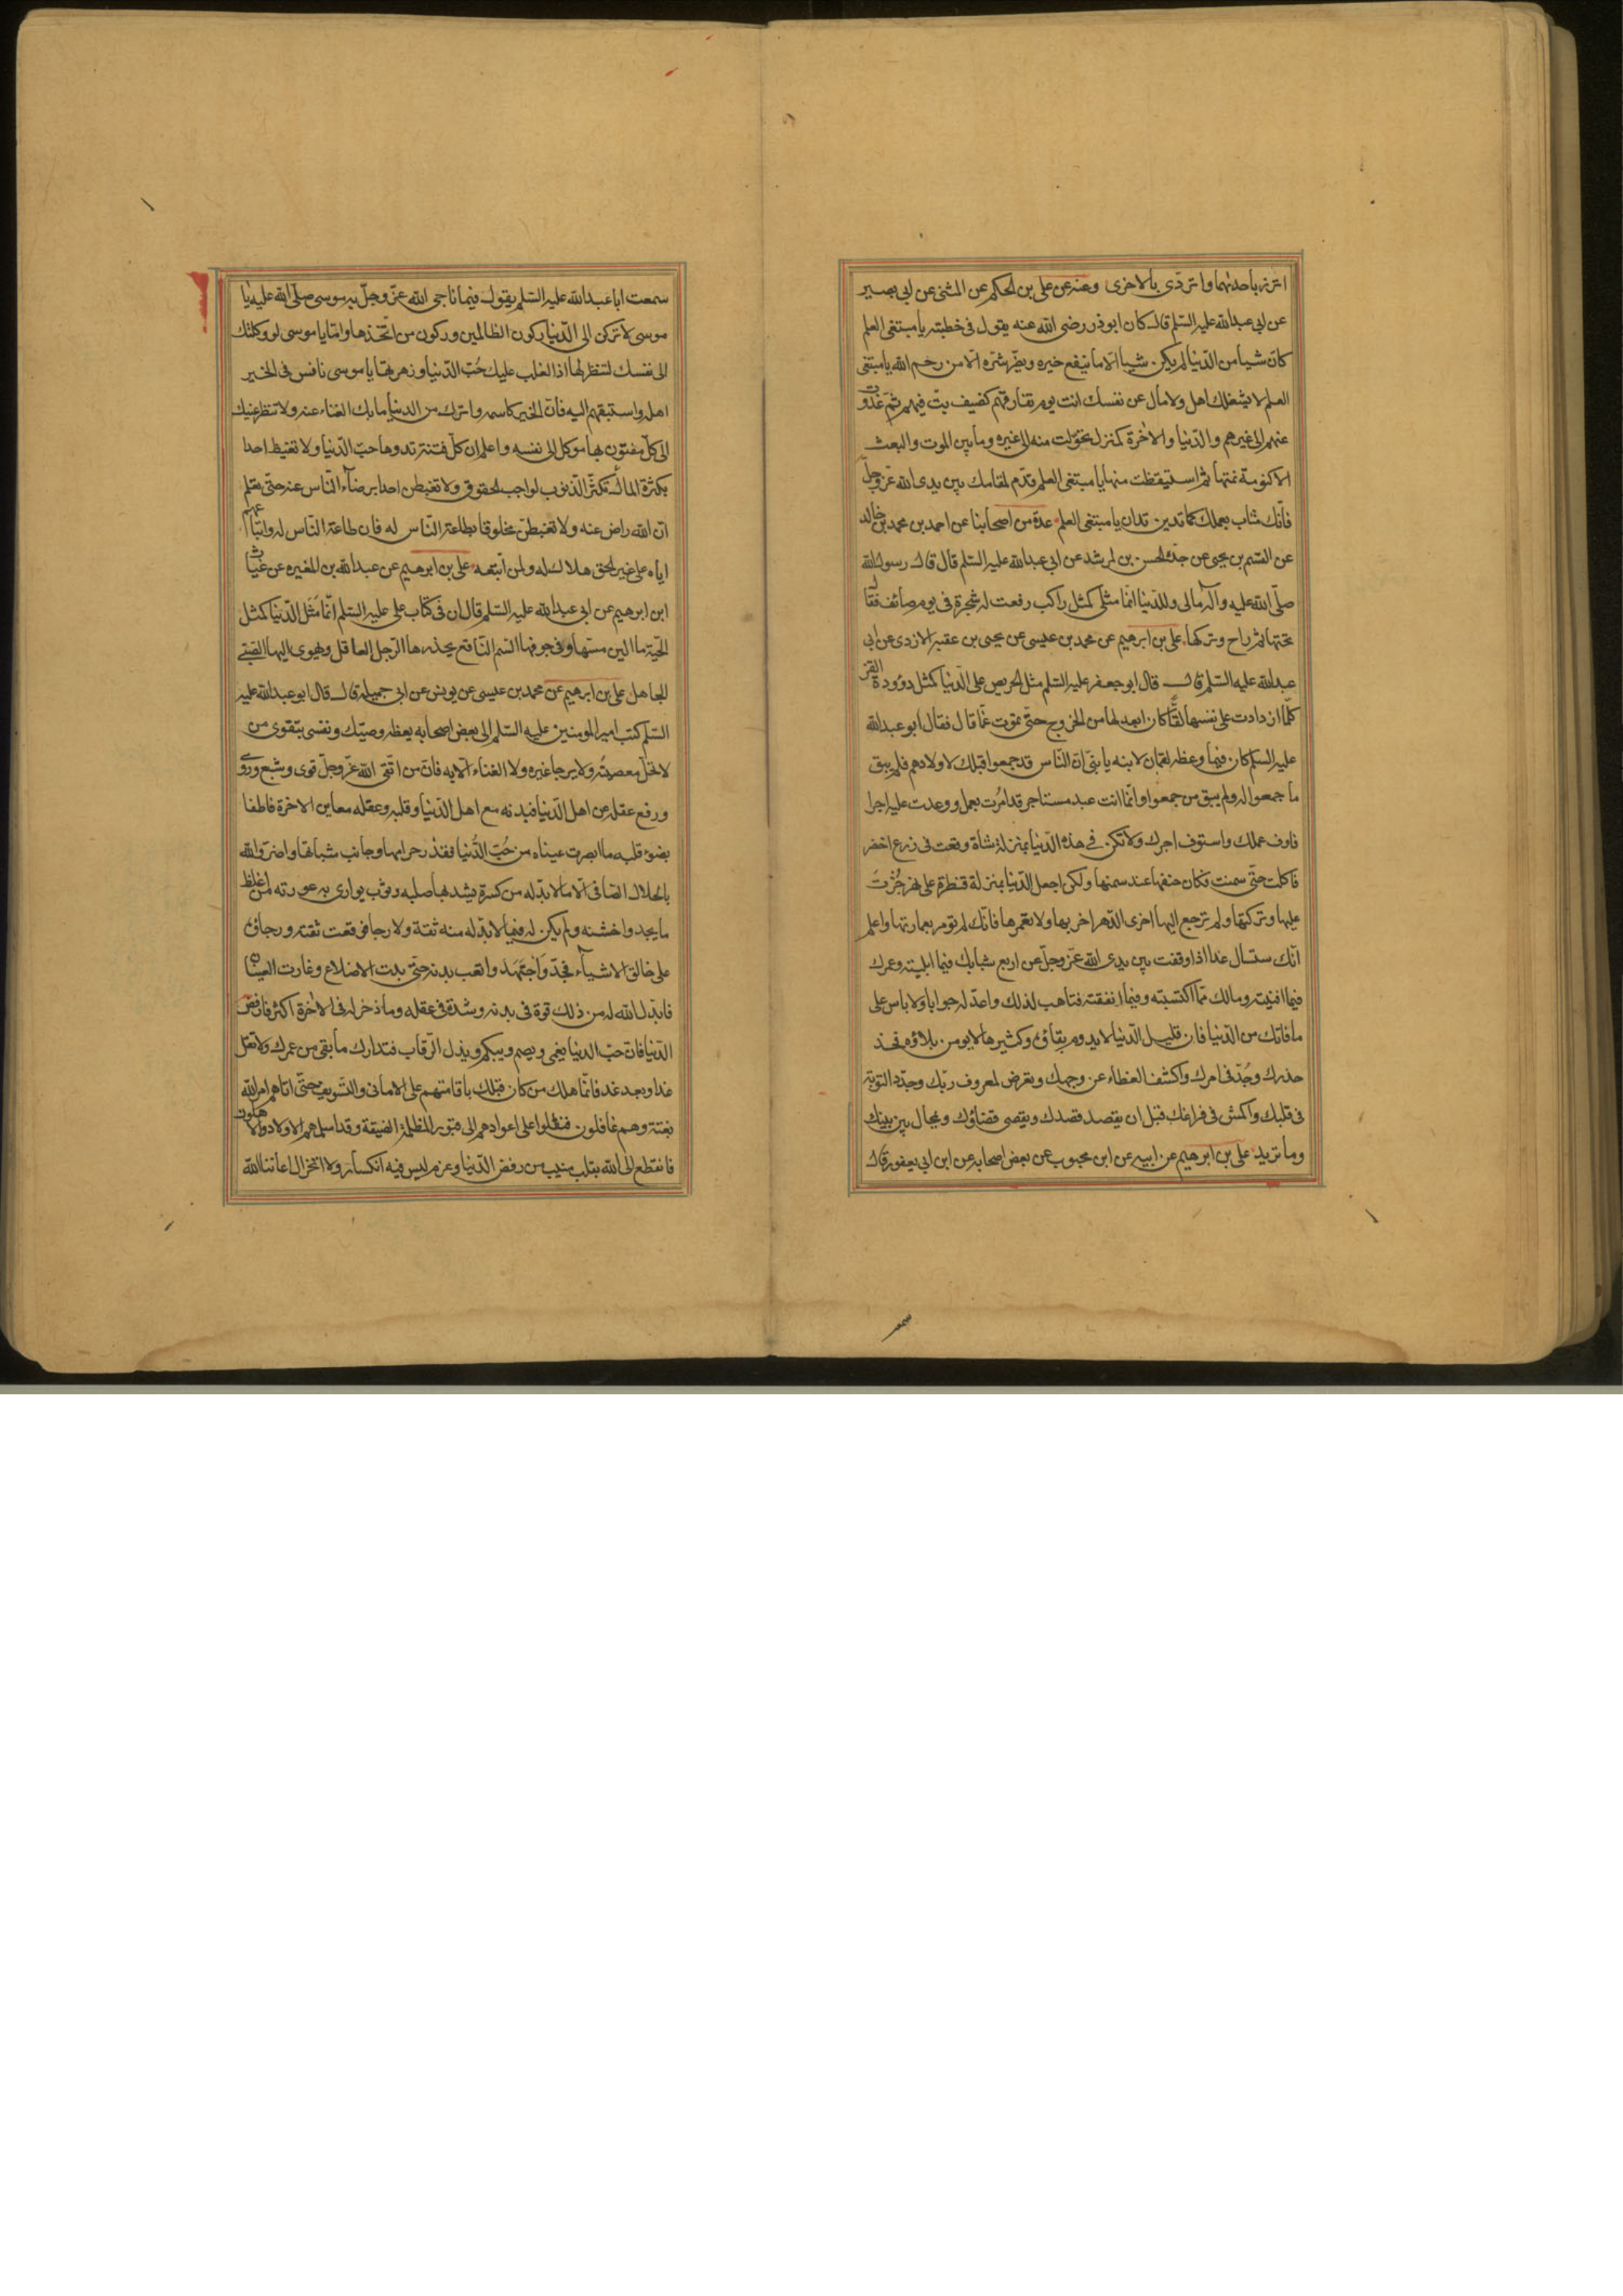 اتزر باحدىهما واتردى بالاخرى وعنه عن على بن الحكم عن المثنى عن ابى بصير
عن ابى عبدالله عليه السّلم قال كان ابوذر رضى الله عنه يقول فى خطبته يا مبتغى العلم
كانّ شيا من الدّنيا لم يكن شيا الّا ما ينفع خيره ويضّر شرّه الّا من رحم الله يا مبتغى
العلم لا يشغلك اهل ولا مال عن نفسك انت يوم تفارقهم كضيف بتّ فيهم ثمّ غدوت
عنهم الى غيرهم والدّنيا والاخرة كمنزل تحوّلت منه الى غيره وما بين الموت والبعث
الا كنومة نمتها ثم استيقظت منها يا مبتغى العلم قدّم لمقامك بين يدى الله عزّ وجلّ
فانّك مثاب بعملك كما تدين تدان يا مبتغى العلم عدة من اصحابنا عن احمد بن محمد بن خالد
عن القسم بن يحيى عن جدّه الحسن بن راشد عن ابى عبدالله عليه السّلم قال قال رسول الله
صلّى الله عليه وآله مالى وللدّنيا انّما مثلى كمثل راكب رفعت له شجرة فى يوم صائف فقال
تحتها ثم راح وتركها على بن ابرهيم عن محمد بن عيسى عن يحيى بن عقبه الازدى عن ابى
عبدالله عليه السّلم قال قال ابوجعفر عليه السّلم مثل الحريص على الدّنيا كمثل دؤودة القز
كلّما ازدادت على نفسها لفّا كان ابعد لها من الخروج حتّى تموت غمّا قال فقال ابو عبدالله
عليه السّلم كان فيما وعظ به لقمان لابنه يا بنىّ انّ النّاس قد جمعوا قبلك لاولادهم فلم يبق
ما جمعوا له ولم يبق من جمعوا وانّما انت عبد مستاجر قد امُرت بعمل ووعدت عليه اجرا
فاوف عملك واستوف اجرك ولا تكن فى هذه الدّنيا بمنزلة شاة وقعت فى زرع اخضر
فاكلت حتّى سمنت فكان حتفها عند سمنها ولكن اجعل الدّنيا بمنزلة قنطرة على نهر جُزْتَ
عليها وتركتها ولم ترجع اليها اخرى الدّهر اخربها ولا تعمرها فانّك لم تؤمر بعمارتها واعلم
انّك ستسال غدا اذا وقفت بين يدى الله عزّ وجلّ عن اربع شبابك فيما ابليته وعمرك
فيما افنيته ومالك ممّا اكتسبته وفيما انفقته فتاهب لذلك واعدّ له جوابا ولا تاس على
ما فاتك من الدّنيا فان قليل الدّنيا لا يدوم بقاؤه وكثيرها لا يومن بلاؤه فخذ
حذرك وجُدّ فى امرك واكشف الغطاء عن وجهك وتعرض لمعروف ربّك وجدّد التوبة
فى قلبك واكمش فى فراغك قبل ان يقصد قصدك ويقضى قضاؤك ويحال بين بينك
وما تريد على بن ابرهيم عن ابيه عن ابن محبوب عن بعض اصحابه عن ابن ابى يعفور قال
سمعت
سمعت ابا عبدالله عليه السّلم يقول فيما ناجى الله عزّ وجلّ به موسى صلّى الله عليه يا
موسى لا تركن الى الدّنيا ركون الظالمين وركون من اتّخذها واما يا موسى لو وكلتك
الى نفسك لتنظر لها اذا لغلب عليك حُبّ الدّنيا وزهرتها يا موسى نافس فى الخير
اهله واستبقهم اليه فانّ الخير كاسمه واترك من الدنيا ما بك الغناء عنه ولا تنظر عينك
الى كلّ مفتون بها موكل الى نفسه واعلم ان كلّ فتنة بدوها حبّ الدّنيا ولا تغبط احدا
بكثرة المال تكثّر الذّنوب لواجب الحقوق ولا تغبطن احدا برضاء النّاس عنه حتّى يعلم
انّ الله راض عنه ولا تغبطنّ مخلوقا بطاعة النّاس له فان طاعة النّاس له واتّباعهم
اياه على غير الحق هلاك له ولمن اتّبعه على بن ابرهيم عن عبدالله بن المغيره عن غياث
ابن ابرهيم عن ابى عبدالله عليه السّلم قال ان فى كتاب على عليه السّلم انّما مَثَل الدّنيا كمثل
الحيّة ما الين مسّها وفى جوفها السّم النّاقع يحذرها الرّجل العاقل ويهوى اليها الصّبى
الجاهل على بن ابرهيم عن محمد بن عيسى عن يونس عن ابى جميله قال قال ابو عبدالله عليه
السّلم كتب امير المومنين عليه السّلم الى بعض اصحابه يعظه وصيّتك ونفسى بتقوى من
لا تحلّ معصيته ولا يرجا غيره ولا الغناء الّا به فانّ من اتّقى الله عزّ وجلّ قوى وشبع وروى
ورفع عقله عن اهل الدّنيا فبدنه مع اهل الدّنيا وقلبه وعقله معاين الاخرة فاطفا
بضوء قلبه ما ابصرت عيناه من حُبّ الدُّنيا فقذر حرامها وجانب شبهاتها واضرّ والله
بالحلال الصّافى الّا ما لا بدّ له من كسرة يشد بها صلبه وثوب يوارى به عورته من اغلظ
ما يجد واخشنه ولم يكن له فيما لا بدّ له منه ثقة ولا رجا فوقعت ثقته ورجاؤه
على خالق الاشياء فجدّ وَاجتَهَد واتعب بدنه حتّى بدت الاضلاع وغارت العينان
فابدل الله له من ذلك قوة فى بدنه وشدة فى عقله وما ذخر له فى الاخرة اكثر فارفض
الدّنيا فانّ حبّ الدنيا يعمى ويصم ويبكم ويذل الرّقاب فتدارك ما بقى من عمرك ولا تقل
غدا وبعد غد فانّما هلك من كان قبلك باقامتهم على الامانى والتّسويف حتّى اتاهم امر الله
بغتة وهم غافلون فنقلوا على اعوادهم الى قبورالمظلمة الضيقة وقد اسلمهم الاولاد والاهلون
فانقطع الى الله بقلب منيب من رفض الدّنيا وعزم ليس فيه انكسار ولا انخزال اعاننا الله